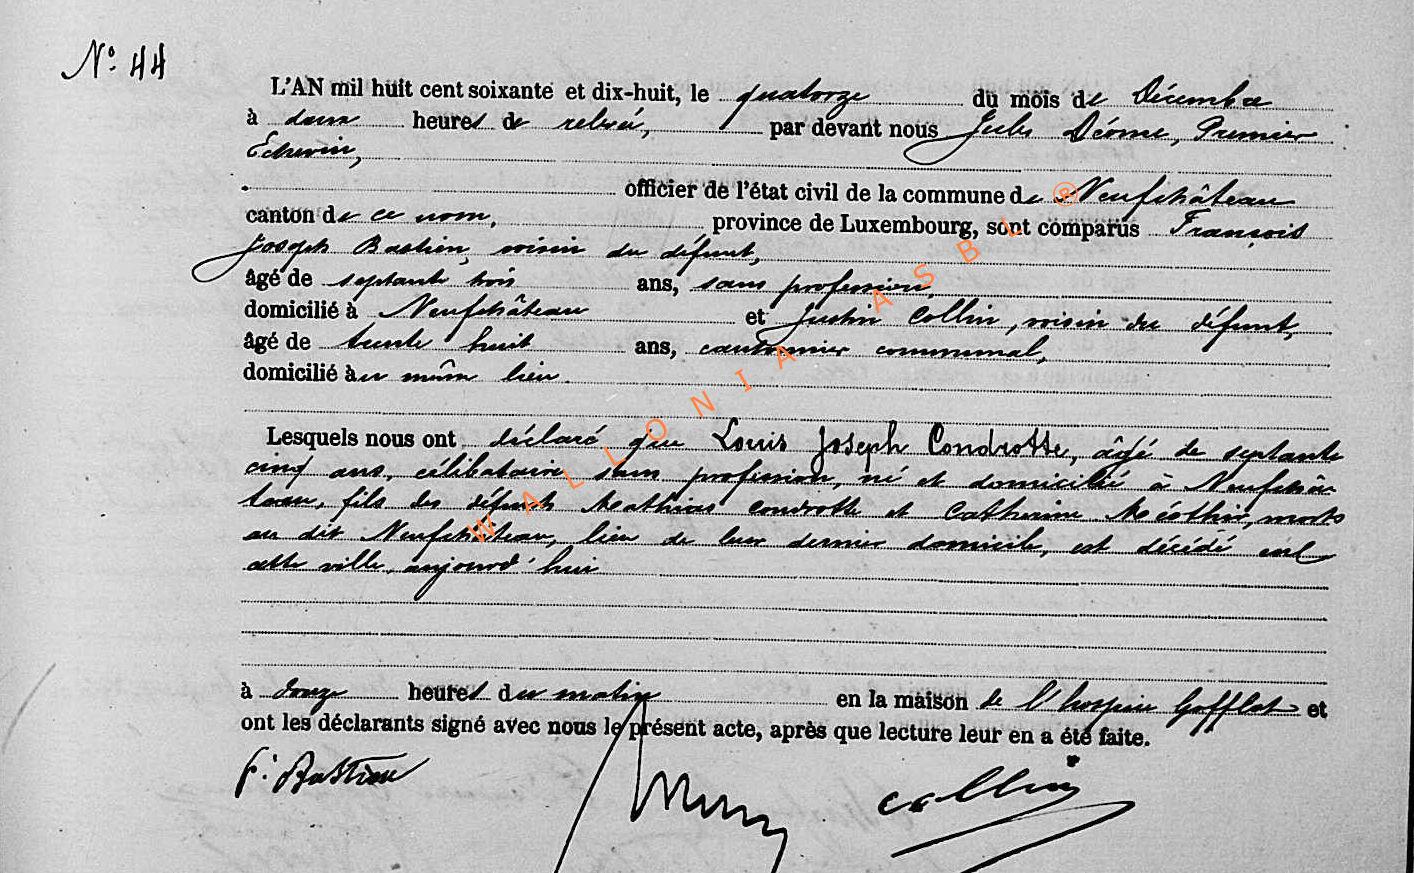 N° 44
L'AN mil huit cent soixante et dix-huit, le quatorze du mois de Décembre
à deux heures de relevée, par devant nous Jules Déome, Premier
Echevin,
officier de l'état civil de la commune de Neufchâteau
canton de ce nom, province de Luxembourg, sont comparus François
Joseph Bastien, voisin du défunt,
âgé de septante trois ans, sans profession,
domicilié à Neufchâteau et Justin Collin, voisin du défunt,
âgé de trente huit ans, cantonnier communal,
domicilié au même lieu.
Lesquels nous ont déclaré que Louis Joseph Condrotte, âgé de septante
cinq ans, célibataire sans profession, né et domicilié à Neufchâ-
teau, fils des défunts Mathias Condrotte et Catherine, morts
au dit Neufchâteau, lieu de leur dernier domicile, est décédé en
cette ville, aujourd'hui
à onze heures du matin en la maison de l'hospice Gofflot et
ont les déclarants signé avec nous le présent acte, après que lecture leur en a été faite.
F. Bastien
Collin
WALLONIA ASBL ®